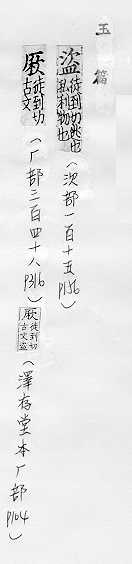 玉篇
盜 徒到切逃也
私利物也
（次部一百十五P156）
徒到切
古文
（厂部三百四十八P316）
徒到切
古文盜
（澤存堂本厂部P104）